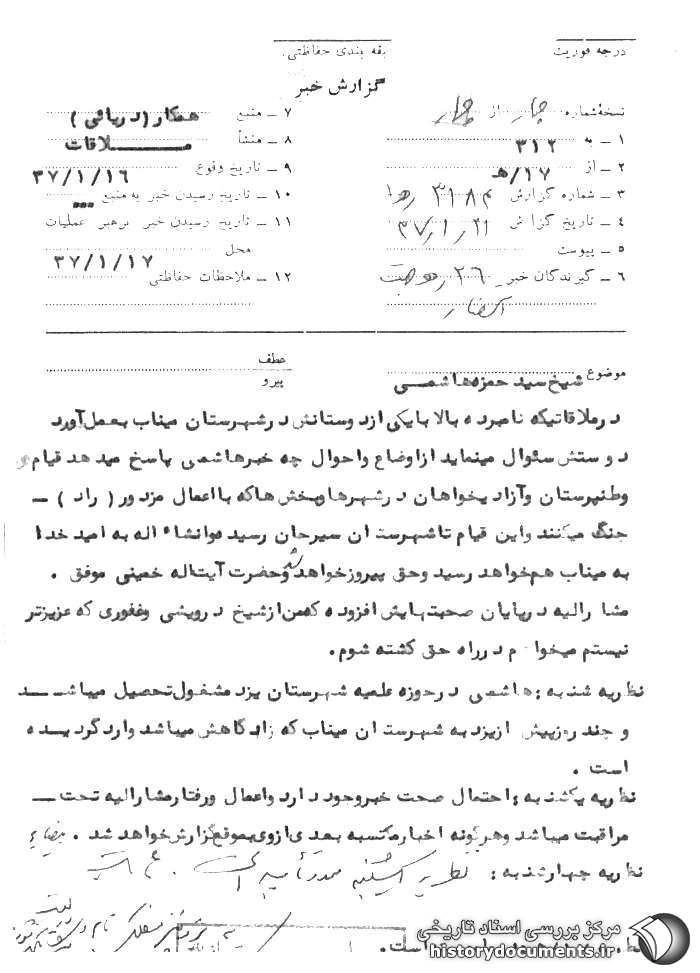 درجه فوریت
بقه بندی حفاظتی.
گزارش خبر
نسخهٔ شماره چهار از چهار
۱ ـ به ۳۱۲
۲ ـ از ۱۷/هـ
۳ ـ شماره گزارش ۳۱۸۴
۴ ـ تاریخ گزارش ۳۷/۱/۲۱
۵ ـ پیوست
۶ ـ گیرندگان خبر
۷ ـ منبع همکار (دریائی)
۸ ـ منشأ ملاقات
۹ ـ تاریخ وقوع ۳۷/۱/۱۶
۱۰ ـ تاریخ رسیدن خبر به منبع
۱۱ ـ تاریخ رسیدن خبر برهبر عملیات
محل ۳۷/۱/۱۷
۱۲ ـ ملاحظات حفاظتی
موضوع شیخ سید حمزه هاشمی
عطف
پیرو
درملاقاتیکه نامبرده بالا بایکی ازدوستانش درشهرستان میناب بعمل آورد
دوستش سئوال مینماید ازاوضاع واحوال چه خبرهاشمی پاسخ میدهد قیام
وطنپرستان وآزادیخواهان درشهرها وبخش هاکه بااعمال مزدور (راد) ـ
جنگ میکنند واین قیام تاشهرستان سیرجان رسیده وانشاء اله به امید خدا
به میناب هم خواهد رسید وحق پیروزخواهد شد وحضرت آیت اله خمینی موفق .
مشارالیه درپایان صحبتهایش افزوده که من ازشیخ درویشی وغفوری که عزیزتر
نیستم میخواهم درراه حق کشته شوم.
نظریه شنبه : هاشمی درحوزه علمیه شهرستان یزد مشغول تحصیل میباشد
و چند روزپیش ازیزد به شهرستان میناب که زادگاهش میباشد وارد گردیده
است .
نظریه یکشنبه : احتمال صحت خبروجود دارد واعمال ورفتارمشارالیه تحت ـ
مراقبت میباشد وهرگونه اخبارمکتسبه بعدی ازوی بموقع گزارش خواهد شد .
نظریه چهارشنبه : نظریه یکشنبه مورد تأیید است.
است.
مرکز بررسی اسناد تاریخی
historydocuments.ir